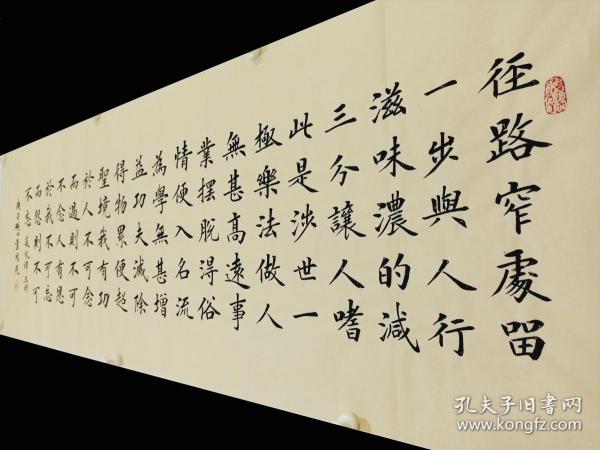 徑路窄處留
一步與人行
滋味濃的減
三分讓人嗜
此是涉世一
極樂法做人
無甚高遠事
業擺脫得俗
情便入名流
為學無甚增
益功夫減除
得物累便超
聖境我有功
於人不可念
而過則不可
不念人有恩
於我不可忘
而怨則不可
不忘
孔夫子旧書网
www.kongfz.com